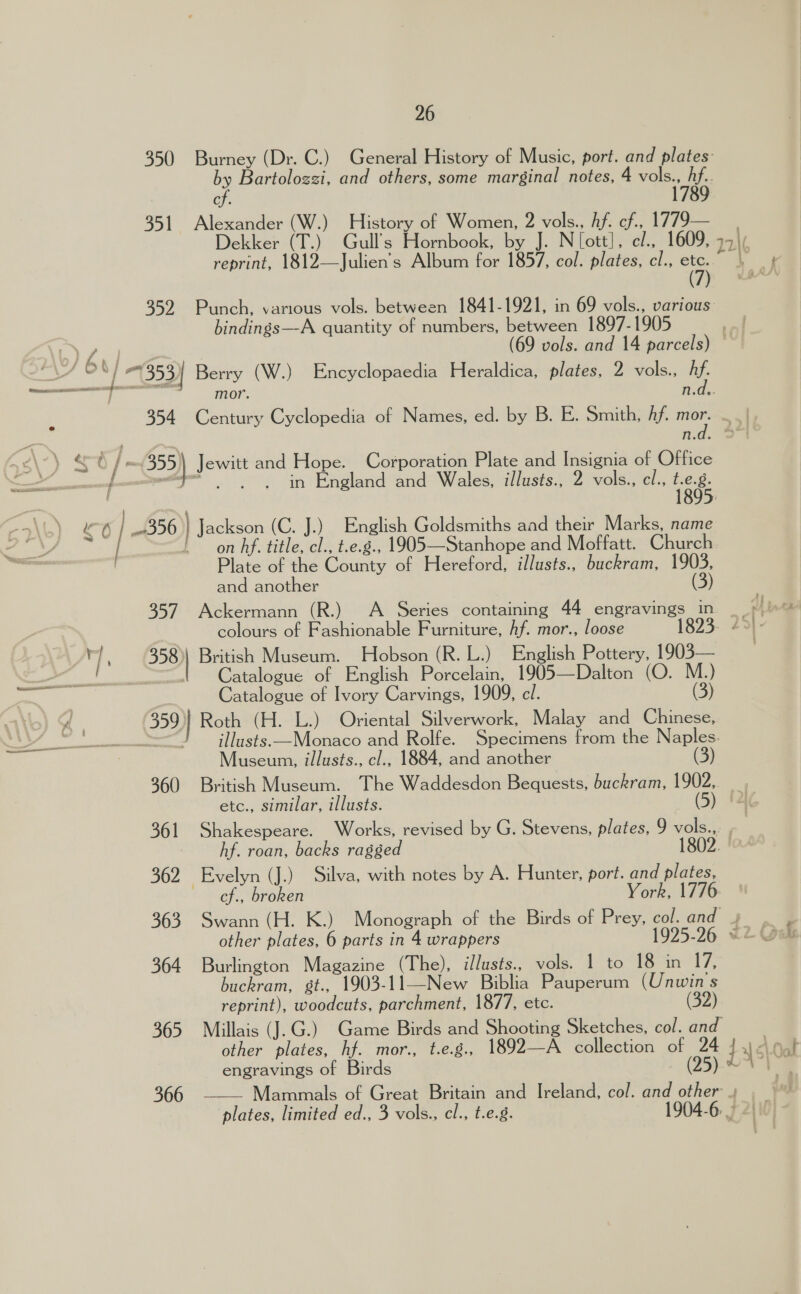 26
350 Burney (Dr. C.) General History of Music, port. and plates
by Bartolozzi, and others, some marginal notes, 4 vols., hf.
cf. 1789
351 Alexander (W.) History of Women, 2 vols., hf. cf., 1779—
Dekker (T.) Gull's Hornbook, by J. N[ott], cl., 1609,
reprint, 1812—Julien's Album for 1857, col. plates, cl., etc.
(7)
352 Punch, various vols. between 1841-1921, in 69 vols., various
bindings—A quantity of numbers, between 1897-1905
(69 vols. and 14 parcels)
353 Berry (W.) Encyclopaedia Heraldica, plates, 2 vols., hf.
mor. n.d.
354 Century Cyclopedia of Names, ed. by B. E. Smith, hf. mor.
n.d.
355 Jewitt and Hope. Corporation Plate and Insignia of Office
. . . in England and Wales, illusts., 2 vols., cl., t.e.g.
1895
356 Jackson (C. J.) English Goldsmiths and their Marks, name
on hf. title, cl., t.e.g., 1905—Stanhope and Moffatt. Church
Plate of the County of Hereford, illusts., buckram, 1903,
and another (3)
357 Ackermann (R.) A Series containing 44 engravings in
colours of Fashionable Furniture, hf. mor., loose 1823
358 British Museum. Hobson (R. L.) English Pottery, 1903—
Catalogue of English Porcelain, 1905—Dalton (O. M.)
Catalogue of Ivory Carvings, 1909, cl. (3)
359 Roth (H. L.) Oriental Silverwork, Malay and Chinese,
illusts.—Monaco and Rolfe. Specimens from the Naples
Museum, illusts., cl., 1884, and another (3)
360 British Museum. The Waddesdon Bequests, buckram, 1902,
etc., similar, illusts. (5)
361 Shakespeare. Works, revised by G. Stevens, plates, 9 vols.,
hf. roan, backs ragged 1802
362 Evelyn (J.) Silva, with notes by A. Hunter, port. and plates,
cf., broken York, 1776
363 Swann (H. K.) Monograph of the Birds of Prey, col. and
other plates, 6 parts in 4 wrappers 1925-26
364 Burlington Magazine (The), illusts., vols. 1 to 18 in 17,
buckram, gt., 1903-11—New Biblia Pauperum (Unwin's
reprint), woodcuts, parchment, 1877, etc. (32)
365 Millais (J. G.) Game Birds and Shooting Sketches, col. and
other plates, hf. mor., t.e.g., 1892—A collection of 24
engravings of Birds (25)
366 —— Mammals of Great Britain and Ireland, col. and other
plates, limited ed., 3 vols., cl., t.e.g. 1904-6